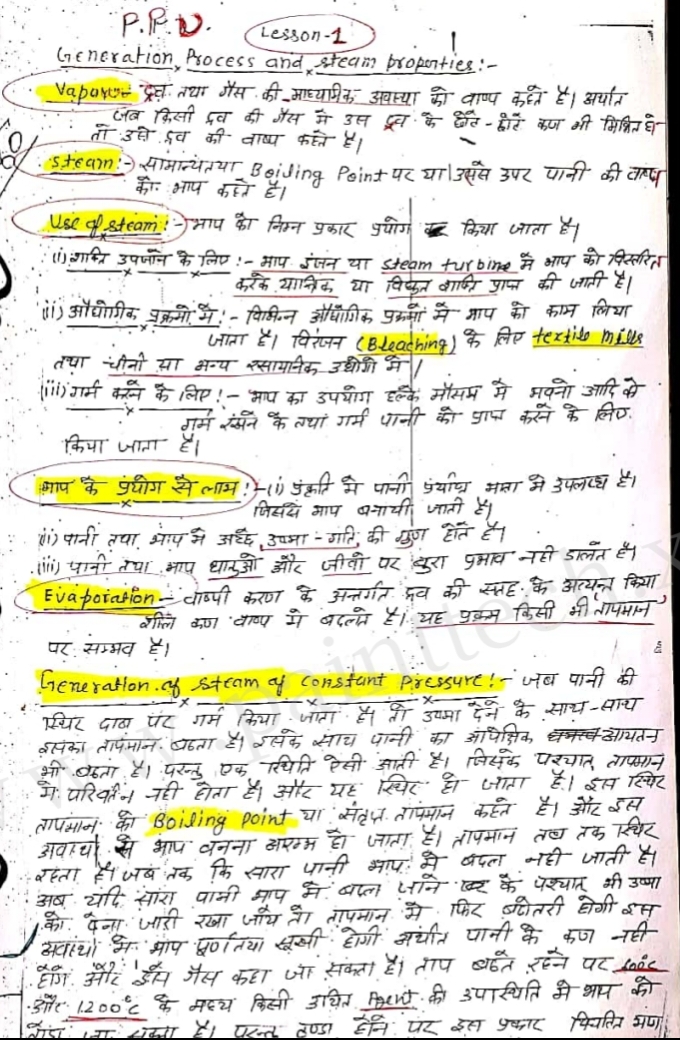 P.P.U.
Lesson-1
Generation Process and steam properties:-
Vapour:- द्रव तथा गैस की माध्यमिक अवस्था को वाष्प कहते है। अर्थात
जब किसी द्रव की गैस में उस द्रव के छोटे-छोटे कण भी मिश्रित हो
तो उसे द्रव की वाष्प कहते है।
Steam:- सामान्यतया Boiling Point पर या उससे उपर पानी की वाष्प
को भाप कहते है।
Use of steam:- भाप का निम्न प्रकार प्रयोग किया जाता है।
(i) शक्ति उपजाने के लिए:- भाप इंजन या steam turbine में भाप को विस्तरित
करके यान्त्रिक या विधुत शक्ति प्राप्त की जाती है।
(ii) औधोगिक प्रक्रमों में:- विभिन्न औधोगिक प्रक्रमों में भाप को काम लिया
जाता है। विरंजन (Bleaching) के लिए textile mills
तथा चीनी या अन्य रसायनिक उधोगो में।
(iii) गर्म करने के लिए:- भाप का उपयोग ठण्डे मौसम में भवनो आदि को
गर्म रखने के तथा गर्म पानी को प्राप्त करने के लिए
किया जाता है।
भाप के प्रयोग से लाभ:- (i) प्रकृति में पानी प्रर्याप्त मात्रा में उपलब्ध है।
जिससे भाप बनायी जाती है।
(ii) पानी तथा भाप में अच्छे उष्मा-गति की गुण होते है।
(iii) पानी तथा भाप धातुओ और जीवो पर बुरा प्रभाव नही डालते है।
Evaporation - वाष्पी करण के अन्तर्गत द्रव की सतह के अत्यन्त क्रिया
शील कण वाष्प में बदलते है। यह प्रक्रम किसी भी तापमान
पर सम्भव है।
Generation of steam of constant Pressure:- जब पानी को
स्थिर दाब पर गर्म किया जाता है। तो उष्मा देने के साथ-साथ
इसका तापमान बढता है। इसके साथ पानी का आपेक्षिक आयतन
भी बढता है। परन्तु एक स्थिति ऐसी आती है। जिसके पश्चात तापमान
में परिवर्तन नही होता है। और यह स्थिर हो जाता है। इस स्थिर
तापमान को Boiling point या संतृप्त तापमान कहते है। और इस
अवस्था से भाप बनना आरम्भ हो जाता है। तापमान तब तक स्थिर
रहता है। जब तक कि सारा पानी भाप में बदल नही जाती है।
अब यदि सारा पानी भाप में बदल जाने के पश्चात भी उष्मा
को देना जारी रखा जाये तो तापमान में फिर बढोतरी होगी इस
अवस्था में भाप पूर्णतया सूखी होगी अर्थात पानी के कण नही
होंगे और इसे गैस कहा जा सकता है। ताप बढते रहने पर
और 1200°C के मध्य किसी उचित Agent की उपास्थिति में भाप को
तोडा जा सकता है। परन्तु ठण्डा होने पर इस प्रकार
www.painttech.x